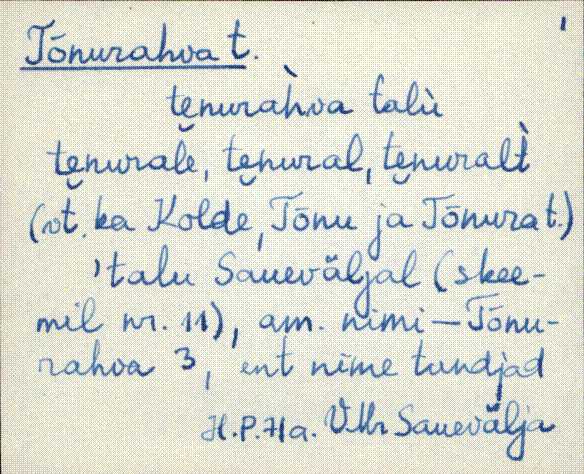 Tõnurahva t. 1
te̮nurah̀va talù
tĕ̮nurale, tĕ̮nural, tĕ̮nuralt̀
(vt. ka Kolde, Tõnu ja Tõnura t.)
'talu Saueväljal (skee-
mil nr. 11), am. nimi — Tõnu-
rahva 3, ent nime tundjad
H.P. Ha. VMr Sauevälja